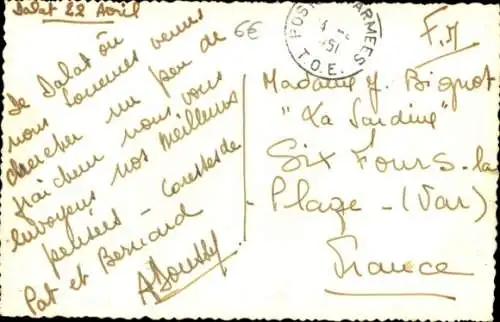 Dalat 22 Avril
De Dalat où
nous sommes venus
chercher un peu de
fraîcheur nous vous
envoyons nos meilleures
pensées - Caresses de
Pat et Bernard
6€
POSTE ARMEES
1951
T.O.E.
F.M
Madame Y. Bignot
"La Sardine"
Six Fours-la
Plage - (Var)
France